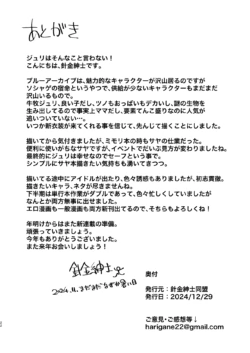 あとがき
ジュリはそんなこと言わない！
こんにちは、針金紳士です。
ブルーアーカイブは、魅力的なキャラクターが沢山居るのですが
ソシャゲの宿命というやつか、供給が少ないキャラクターもまだまだ
沢山いるもので。
牛牧ジュリ、良い子だし、ツノもおっぱいもデカいし、謎の生物を
生み出してるので事実上ママだし、要素てんこ盛りなのに人気が
追いついていない…。
いつか新衣装が来てくれる事を信じて、先んじて描くことにしました。
描いてから気付きましたが、ミモリ本の時もサヤの仕業だった。
便利に使いがちなサヤですが、イベントでだいぶ見方が変わりましたね。
最終的にジュリは幸せなのでセーフという事で。
シンプルにサヤ本描きたい気持ちも湧いてきつつ。
描いてる途中にアイドルが出たり、色々誘惑もありましたが、初志貫徹。
描きたいキャラ、ネタが尽きませんね。
下半期は単行本作業がダブルであって、色々忙しくしていましたが
なんとか両方無事に出せました。
エロ漫画も一般漫画も両方新刊出てるので、そちらもよろしくね！
年明けからはまた新連載の準備。
頑張っていきましょう。
今年もありがとうございました。
また来年お会いしましょう！
針金紳士
奥付
発行元：針金紳士同盟
発行日：2024/12/29
ご意見・ご感想等↓
harigane22@gmail.com